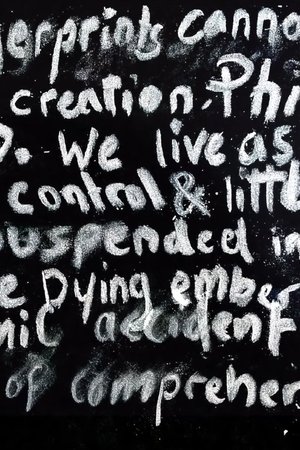 gerprints canno
creation. Ph
. We live as
control & littl
uspended in
e Dying ember
nic accident
of comprehen